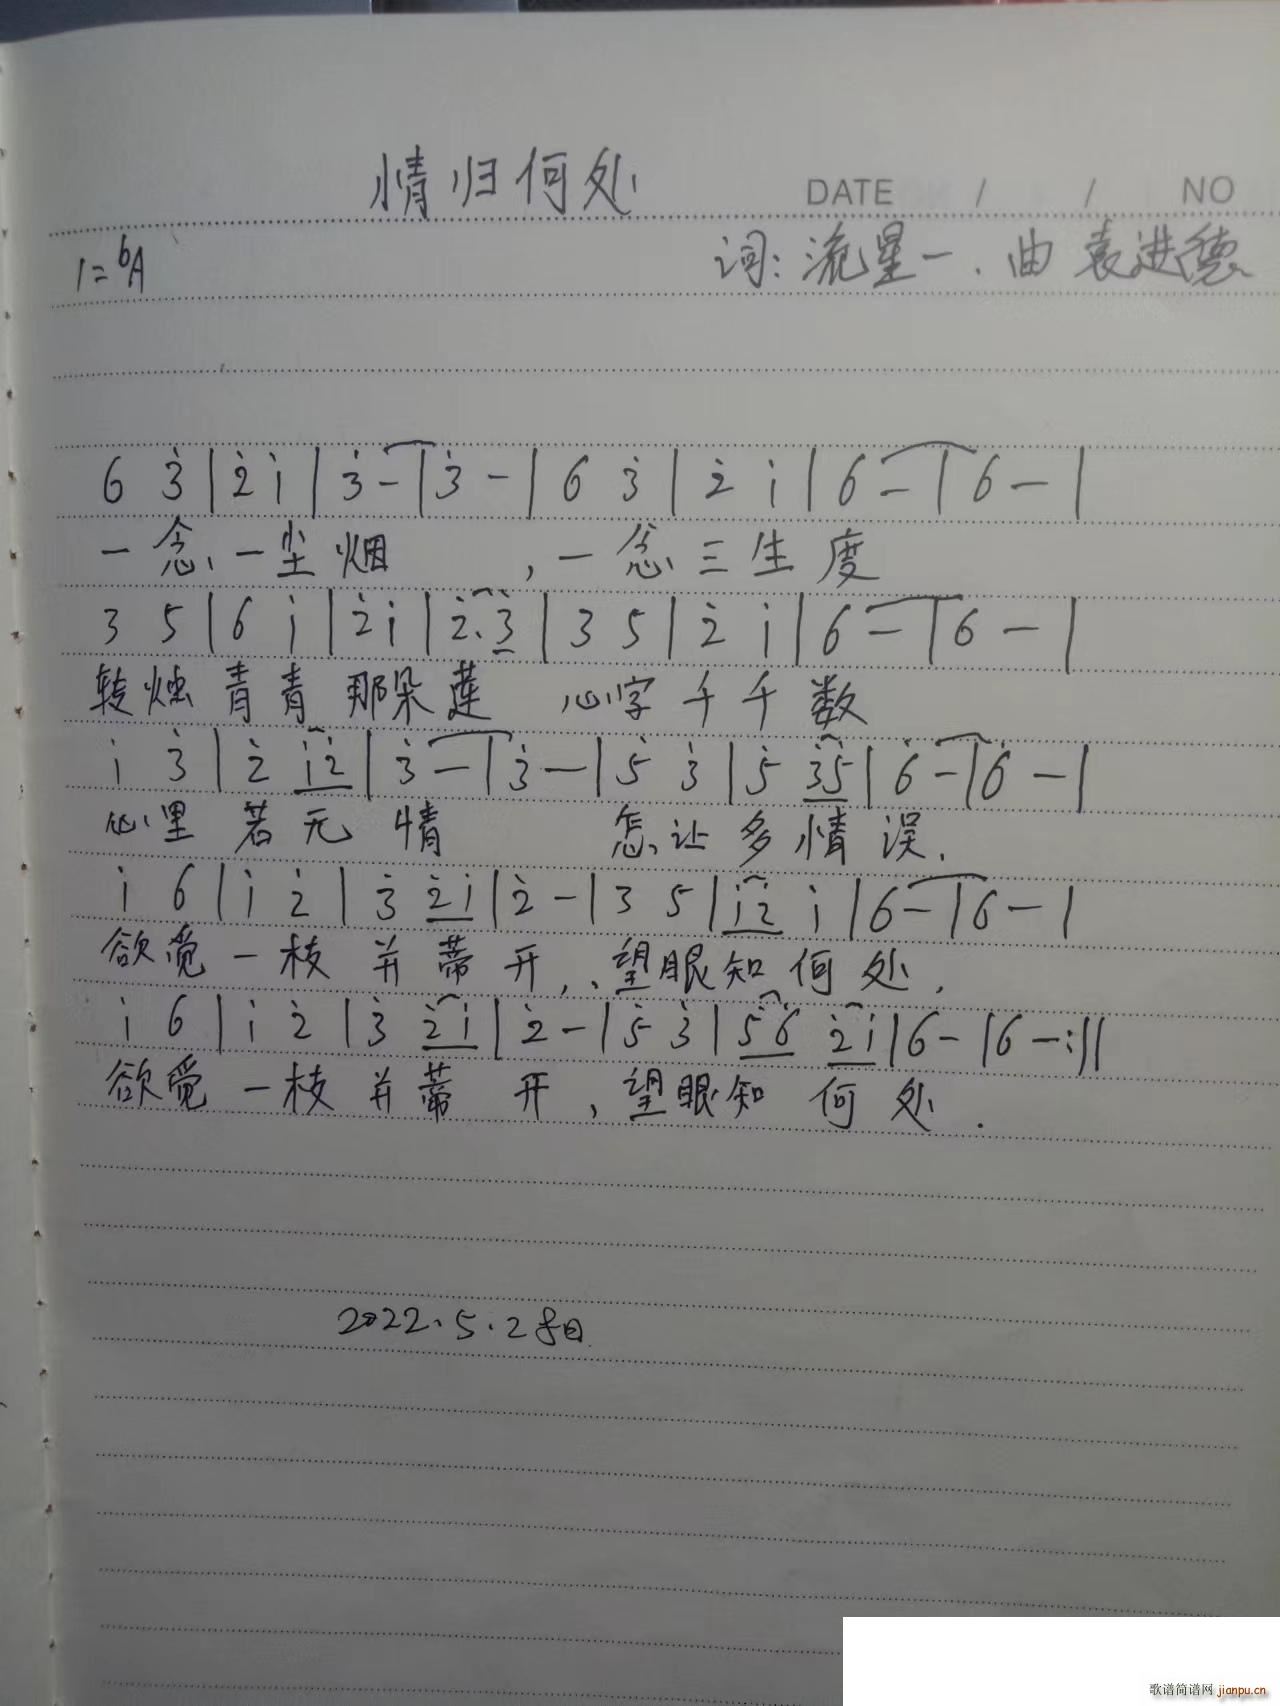 情归何处
DATE / / NO
1=bA 词:流星一、曲 袁进德
6 3̇ | 2̇ 1̇ | 3̇ - | 3̇ - | 6 3̇ | 2̇ 1̇ | 6 - | 6 - |
一念、一尘烟 ,一念三生度
3 5 | 6 1̇ | 2̇ 1̇ | 2̇. 3̇ | 3 5 | 2̇ 1̇ | 6 - | 6 - |
转烛青青那朵莲 心字千千数
1̇ 3̇ | 2̇ 1̇2̇ | 3̇ - | 3̇ - | 5̇ 3̇ | 5̇ 3̇5̇ | 6̇ - | 6̇ - |
心里若无情 怎让多情误.
1̇ 6 | 1̇ 2̇ | 3̇ 2̇1̇ | 2̇ - | 3 5 | 1̇2̇ 1̇ | 6 - | 6 - |
欲觅一枝并蒂开,望眼知何处.
1̇ 6 | 1̇ 2̇ | 3̇ 2̇1̇ | 2̇ - | 5̇ 3̇ | 5̇6̇ 2̇1̇ | 6 - | 6 - :||
欲觅一枝并蒂开,望眼知何处.
歌谱简谱网 jianpu.cn